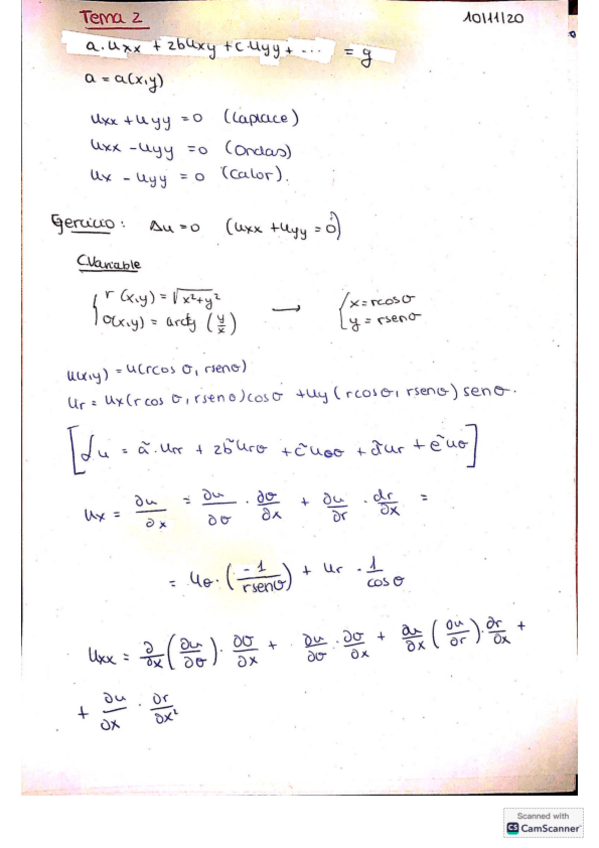 Tema 2 10/11/20
a.uxx + 2buxy + c.uyy + ... = g
a = a(x,y)
uxx + uyy = 0 (Laplace)
uxx - uyy = 0 (Ondas)
ux - uyy = 0 (Calor).
Ejercicio: Δu = 0 (uxx + uyy = 0)
C.Variable
{ r(x,y) = √x²+y² → { x = rcosθ
θ(x,y) = arctg (y/x) y = rsenθ
u(x,y) = u(rcos θ, rsenθ)
ur = ux(rcos θ, rsenθ)cosθ + uy(rcosθ, rsenθ) senθ.
[Lu = ã.urr + 2b̃urθ + c̃uθθ + d̃ur + ẽuθ]
ux = ∂u/∂x = ∂u/∂θ · ∂θ/∂x + ∂u/∂r · dr/∂x =
= uθ · (-1/rsenθ) + ur · 1/cosθ
uxx = ∂/∂x (∂u/∂θ) · ∂θ/∂x + ∂u/∂θ · ∂θ/∂x + ∂u/∂x (∂u/∂r) · ∂r/∂x +
+ ∂u/∂x · ∂r/∂x²
Scanned with
CS CamScanner